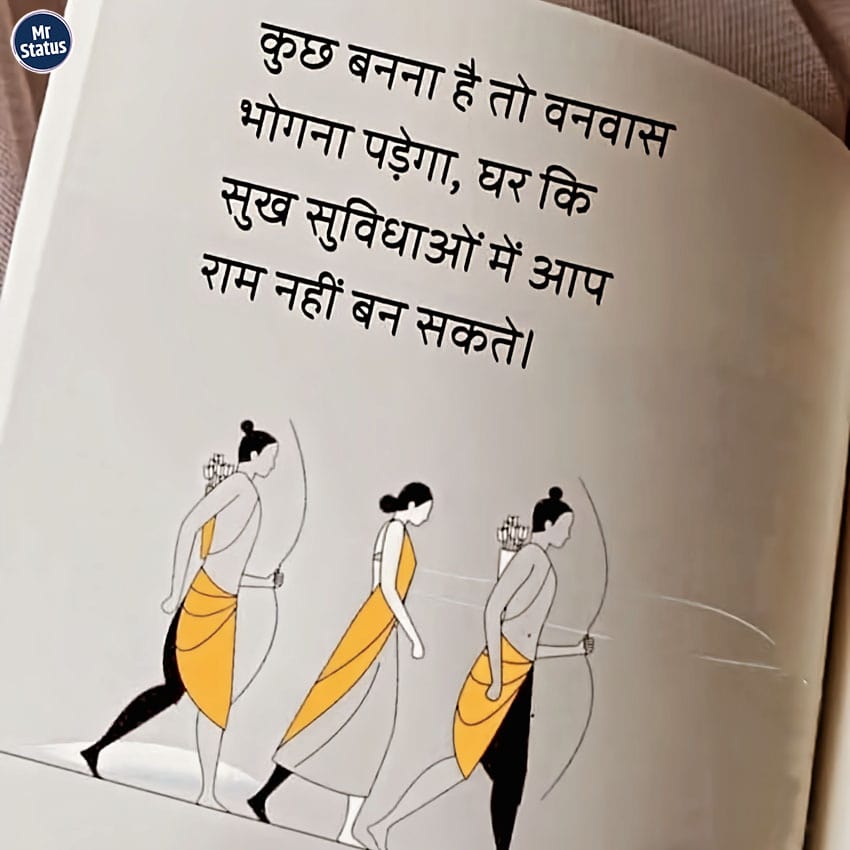 Mr
Status
कुछ बनना है तो वनवास
भोगना पड़ेगा, घर कि
सुख सुविधाओं में आप
राम नहीं बन सकते।